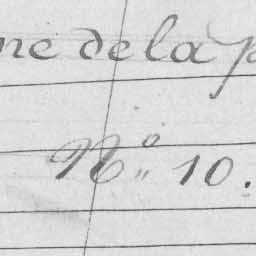 ne de la p
Nº 10.